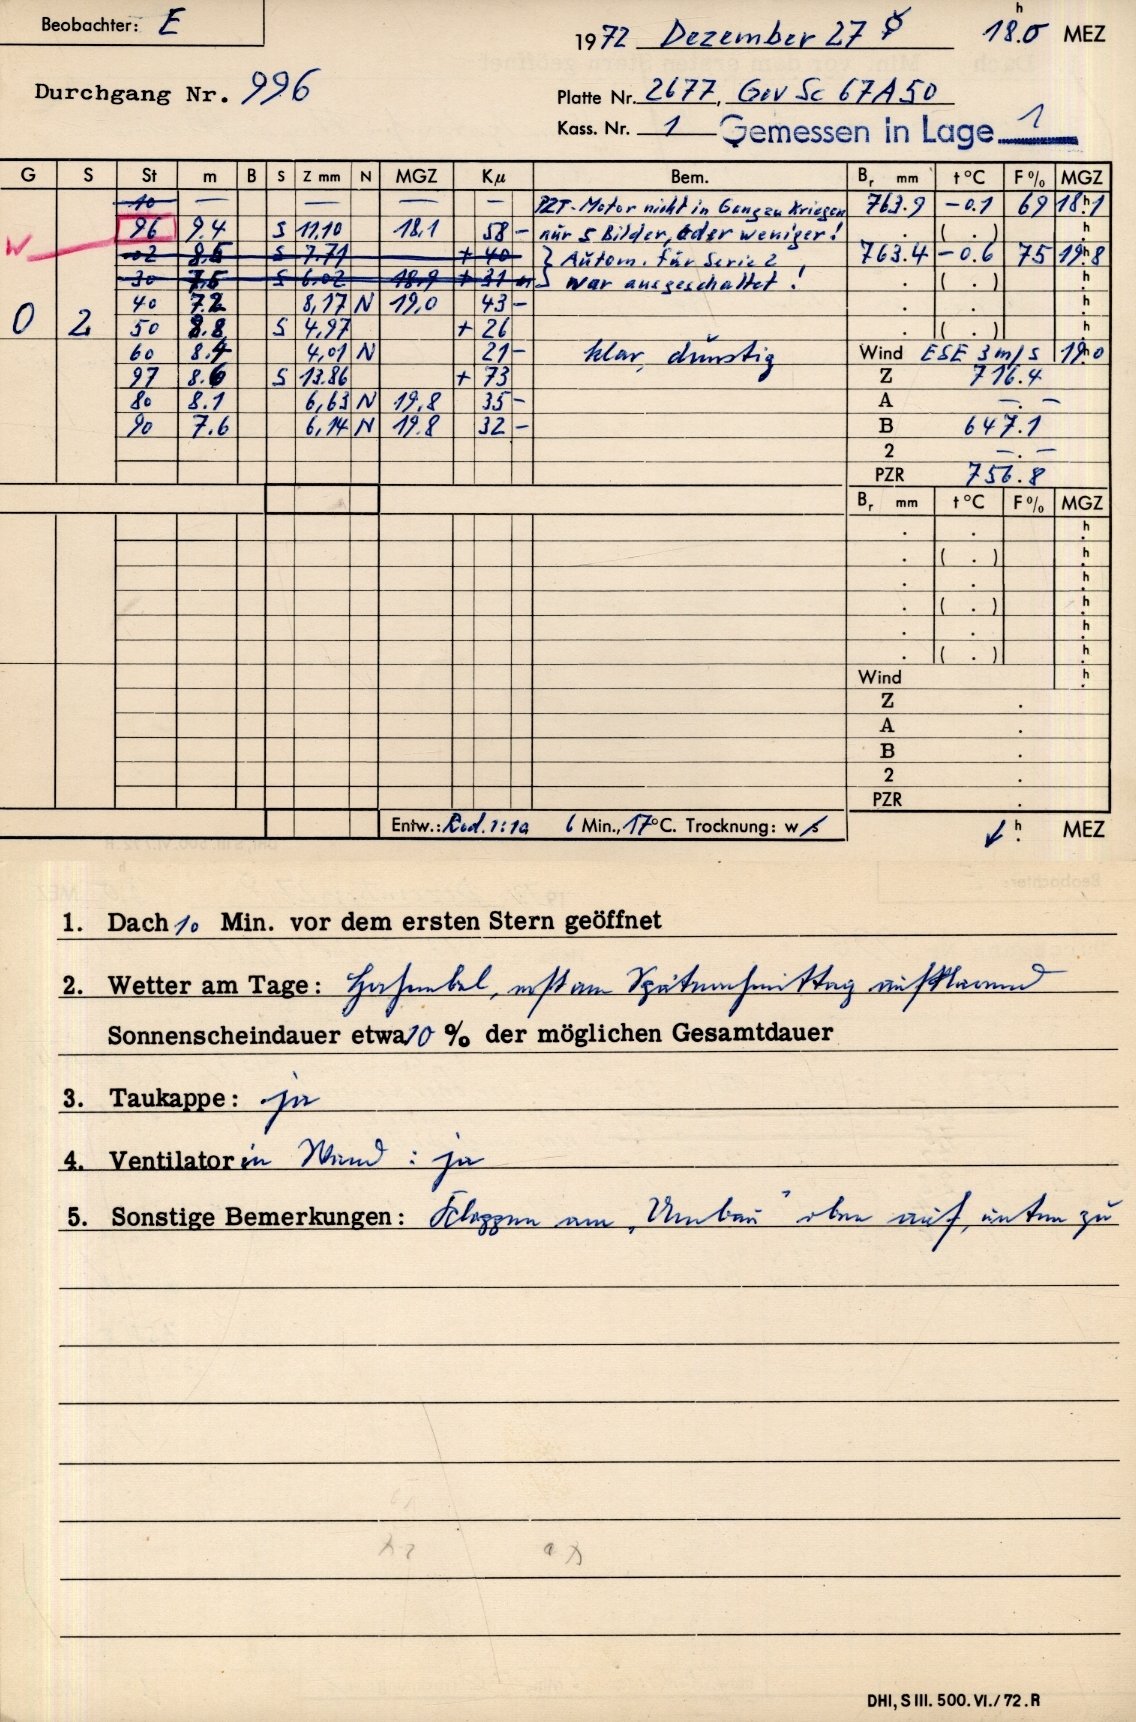 Beobachter: E
1972 Dezember 27 ☿ 18.0 h MEZ
Durchgang Nr. 996
Platte Nr. 2677, Gev Sc 67A50
Kass. Nr. 1 Gemessen in Lage 1
G S St m B S Z mm N MGZ Kμ Bem. Br mm t °C F % MGZ
10 — — — — PZT-Motor nicht in Gang zu kriegen 763.9 -0.1 69 18h1
w 96 9.4 S 11.10 18.1 58 - nur 5 Bilder, oder weniger! . ( . ) h
02 8.5 S 7.71 + 40 } Autom. für Serie 2 763.4 -0.6 75 19h8
30 7.5 S 6.02 18.9 + 31 war ausgeschaltet! . ( . ) h
40 7.2 8,17 N 19,0 43 - . . h
0 2 50 8.8 S 4,97 + 26 . ( . ) h
60 8.4 4,01 N 21 - klar, dunstig Wind ESE 3 m/s 19h0
97 8.6 S 13.86 + 73 Z 716.4
80 8.1 6,63 N 19,8 35 - A —.—
90 7.6 6,14 N 19.8 32 - B 647.1
2 —.—
PZR 756.8
Br mm t °C F % MGZ
. . h
. ( . ) h
. . h
. ( . ) h
. . h
. ( . ) h
Wind h
Z .
A .
B .
2 .
PZR .
Entw.: Rod. 1:10 6 Min., 17°C. Trocknung: w/s h MEZ
1. Dach 10 Min. vor dem ersten Stern geöffnet
2. Wetter am Tage: Hochnebel, erst am Spätnachmittag aufklarend
Sonnenscheindauer etwa 10 % der möglichen Gesamtdauer
3. Taukappe: ja
4. Ventilator in Wand: ja
5. Sonstige Bemerkungen: Klappen am „Umbau" oben auf, unten zu
DHI, S III. 500. VI./72. R